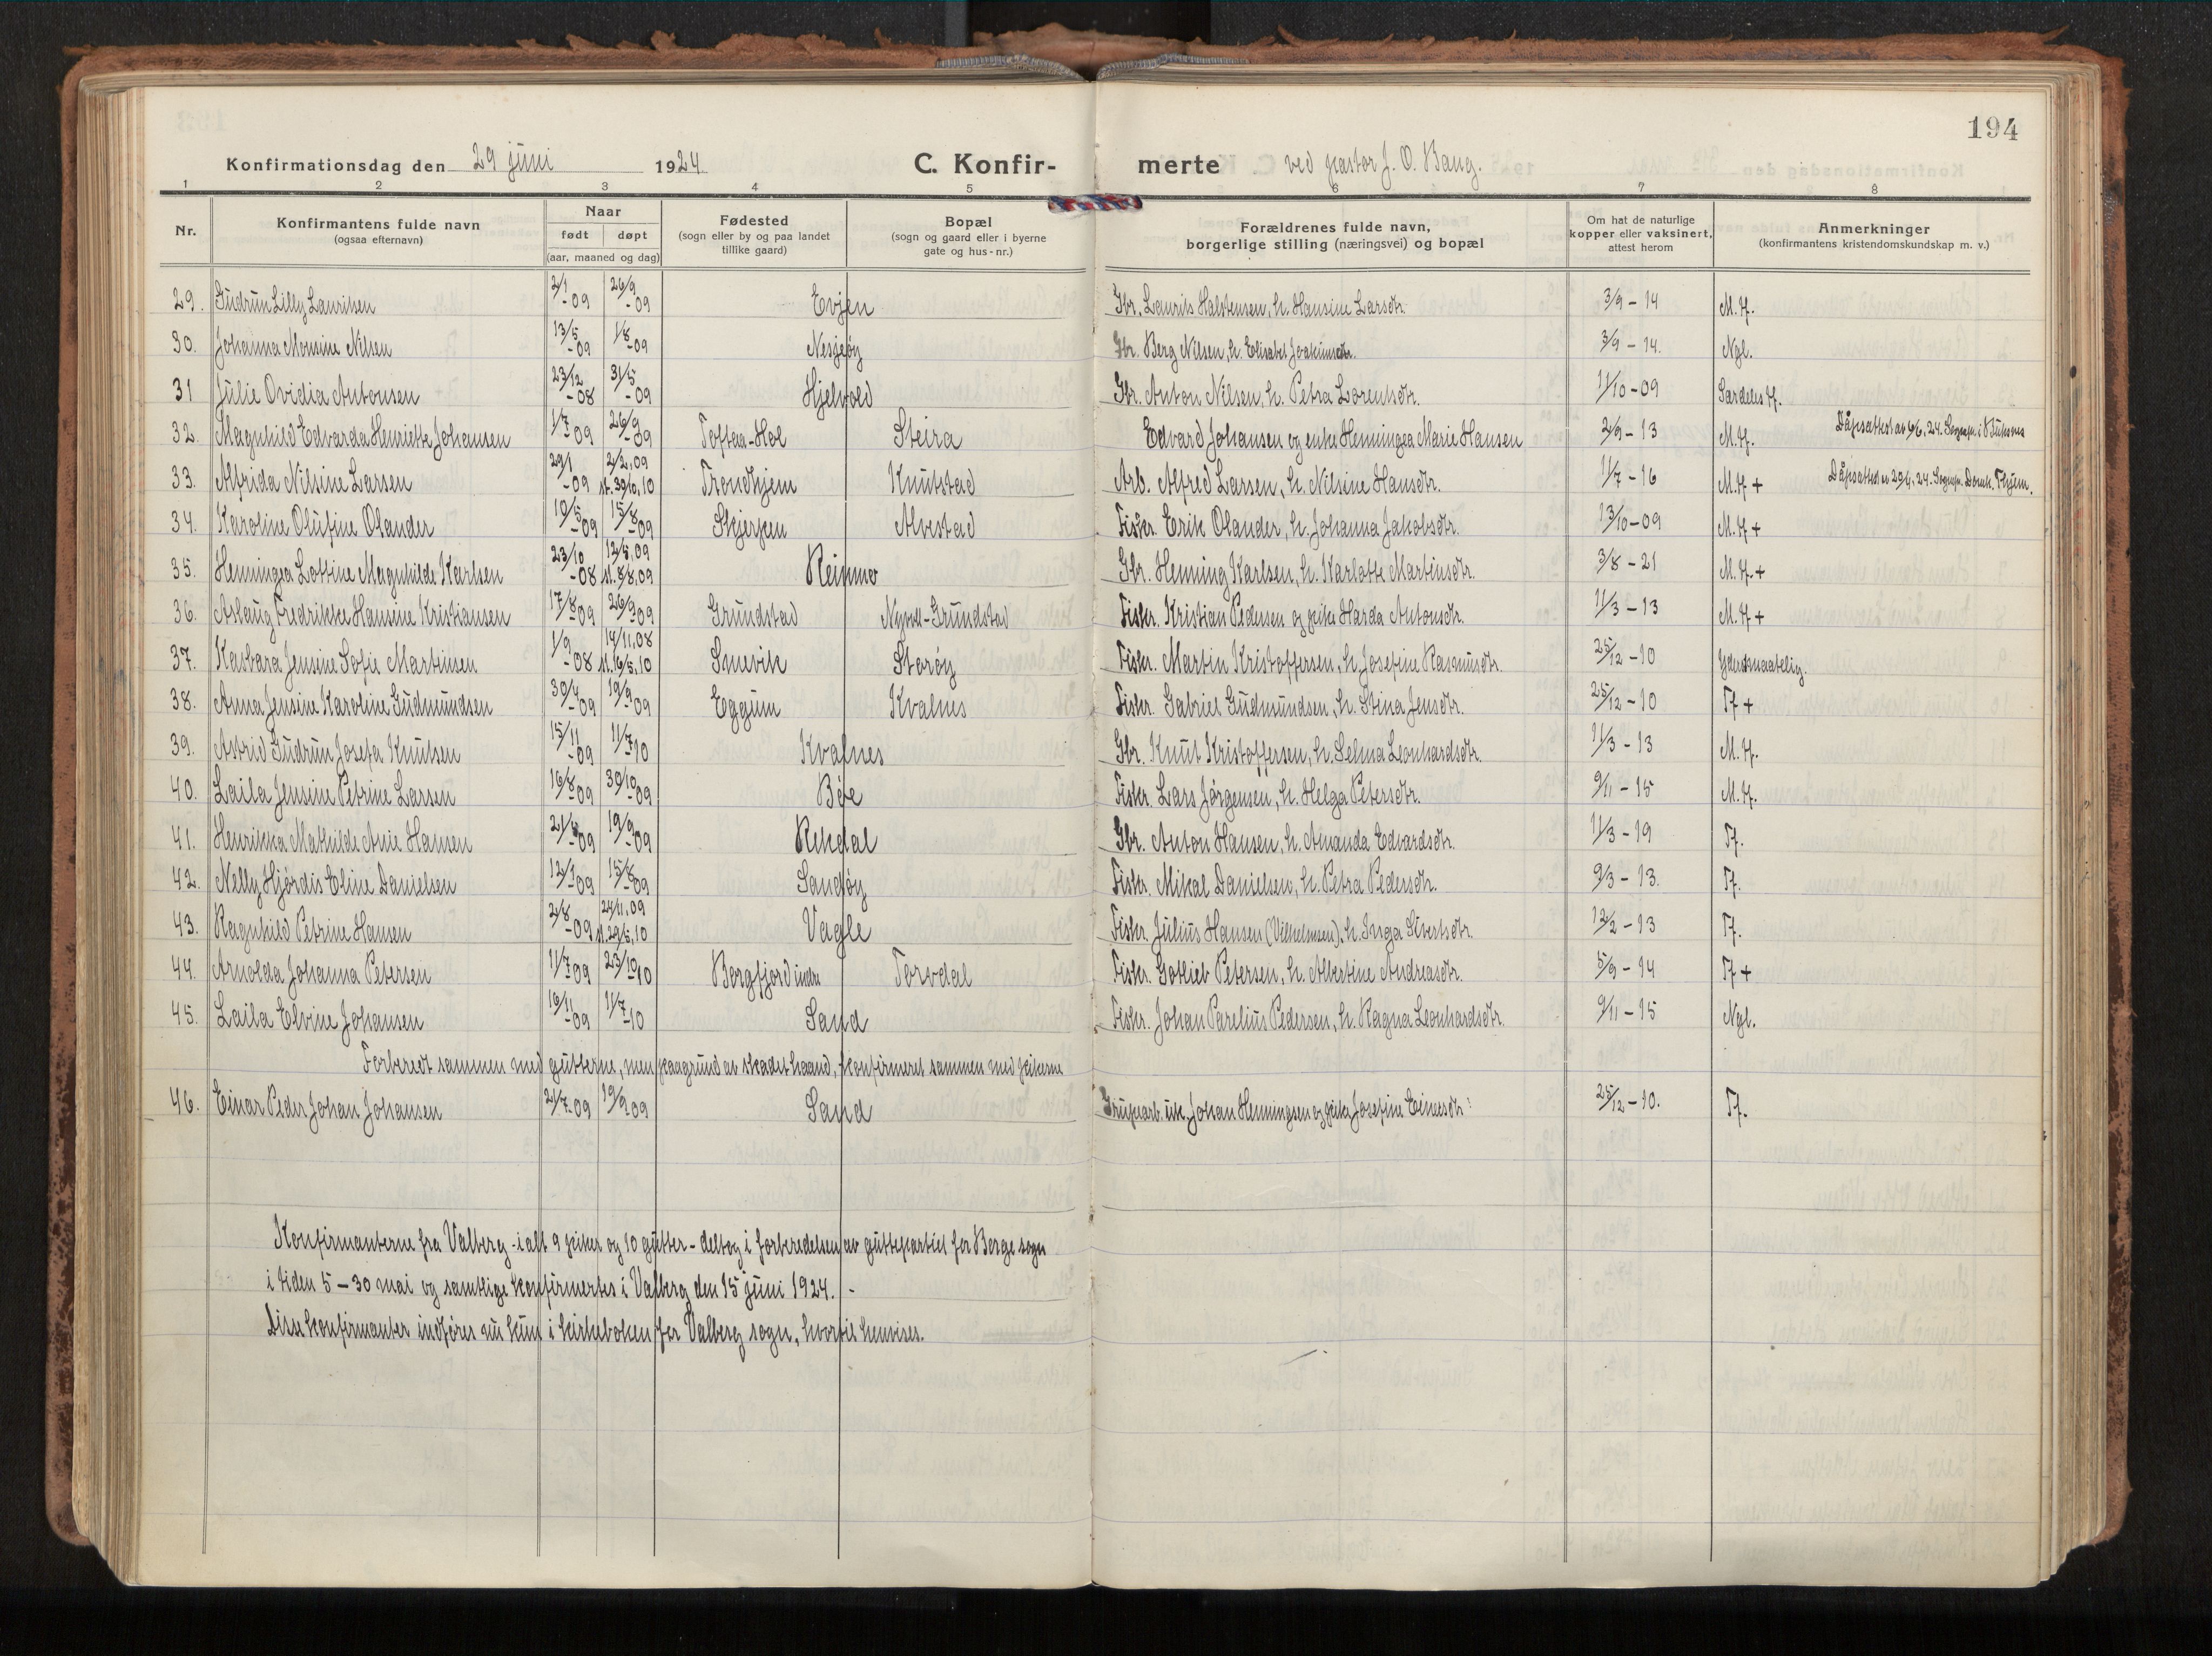 194
Konfirmationsdag den 29 juni 1924. C. Konfirmerte ved pastor J. O. Bang.
1 2 3 4 5 6 7 8
Nr. Konfirmantens fulde navn (ogsaa efternavn) Naar født døpt (aar, maaned og dag) Fødested (sogn eller by og paa landet tillike gaard) Bopæl (sogn og gaard eller i byerne gate og hus-nr.) Forældrenes fulde navn, borgerlige stilling (næringsvei) og bopæl Om hat de naturlige kopper eller vaksinert, attest herom Anmerkninger (konfirmantens kristendomskundskap m. v.)
29. Gudrun Lilly Lauritsen 2/1-09 26/9-09 Evjen Gbr. Laurits Halstensen, h. Hansine Larsdtr. 3/9-14 M.H.
30. Johanna Monsine Nilsen 13/5-09 1/8-09 Nesjeøy Gbr. Berg Nilsen, h. Elisabet Joakimsdtr. 3/9-14. Ngl.
31 Julie Ovidia Antonsen 23/12-08 31/5-09 Hjelvold Gbr. Anton Nilsen, h. Petra Lorentsdtr. 11/10-09 Særdeles H.
32. Magnhild Edvarda Henriette Johansen 1/7-09 26/9-09 Toftaa-Hol Steira Edvard Johansen og enke Henningea Marie Hansen 2/9-13 M.H. Dåpsattest av 6/6, 24. Sognepr. i Buksnes
33. Alfrida Nilsine Larsen 29/1-09 2/2,09 st. 30/10,10 Trondhjem Knutstad Arb. Alfred Larsen, h. Nilsine Hansdtr. 11/7-16 M.H + Dåpsattest av 29/4, 24. Sognepr. Domk. Thjem.
34. Karoline Olufine Olander 10/5-09 15/8-09 Skjerpen Alvestad Fisker. Erik Olander, h. Johanna Jakobsdtr. 13/10-09 M.H +
35. Henningea Lottine Magnhilde Karlsen 23/10-08 12/5,09 st. 8/8,09 Reinmo Gbr. Henning Karlsen, h. Karlotte Martinsdtr. 3/8-21 M.H.+
36. Aslaug Fredrikke Hansine Kristiansen 17/8-09 26/9-09 Grundstad Nyvoll-Grundstad Fisker. Kristian Pedersen og pike Harda Antonsdtr. 11/3-13 M.H +
37. Karbara Jensine Sofie Martinsen 1/9-08 14/11,08 st. 16/5,10 Smevik Storøy Fisker. Martin Kristoffersen, h. Josefine Rasmusdtr. 25/12-10 Ydersmaatelig.
38. Anna Jensine Karoline Gudmundsen 30/4-09 19/9-09 Eggum Kvalnes Fisker. Gabriel Gudmundsen, h. Stina Jensdtr. 25/12-10 H +
39. Astrid Gudrun Josefa Knutsen 15/11-09 11/7-10 Kvalnes Gbr. Knut Kristoffersen, h. Selma Leonhardsdtr. 11/3-13 M.H.
40. Laila Jensine Petrine Larsen 16/8-09 30/10-09 Bøe Fisker. Lars Jørgensen, h. Helga Petersdtr. 9/11-15 M.H.
41. Henrikka Mathilde Avie Hansen 21/4-09 19/9-09 Rekdal Gbr. Anton Hansen, h. Amanda Edvardsdtr. 11/3-19 H.
42. Nelly Hjørdis Eline Danielsen 12/1-09 15/8-09 Sandøy Fisker. Mikal Danielsen, h. Petra Pedersdtr. 9/3-13. H.
43. Ragnhild Petrine Hansen 2/8-09 24/11,09 st. 29/5,10 Vagle Fisker. Julius Hansen (Vilhelmsen), h. Inga Sivertsdtr. 12/2-13 H.
44. Arnolda Johanna Petersen 11/7-09 23/10-10 Borgfjord indre Torvdal Fisker. Gotlieb Petersen, h. Albertine Andreasdtr. 5/9-14 H +
45. Laila Elvine Johansen 16/11-09 11/7-10 Sand Fisker. Johan Parelius Pedersen, h. Ragna Leonhardsdtr. 9/11-15 Ngl.
Forberedt sammen med gutterne, men paagrund av skadet haand, konfirmeret sammen med pikerne
46. Einar Peder Johan Johansen 2/7-09 19/9-09 Sand Grubearb. Johan Henningsen og pike Josefine Einesdtr. 25/12-10. H.
Konfirmanterne fra Valberg - ialt 9 piker og 10 gutter - deltog i forberedelsen av guttepartiet for Borge sogn
i tiden 5-30 mai og samtlige konfirmertes i Valberg den 15 juni 1924. -
Disse konfirmanter indføres nu kun i kirkeboken for Valberg sogn, hvortil henvises.